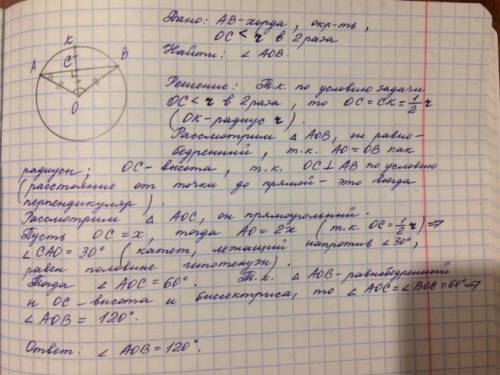 К
С
А
В
О
Дано: АВ-хорда, окр-ть,
ОС < r в 2 раза
Найти: ∠ АОВ.
Решение: Т.к. по условию задачи
ОС < r в 2 раза, то ОС = СК = 1/2 r
(ОК-радиус r).
Рассмотрим △ АОВ, он равно-
бедренний, т.к. АО = ОВ как
радиусы; ОС-высота, т.к. ОС⊥АВ по условию
(расстояние от точки до прямой - это всегда
перпендикуляр).
Рассмотрим △ АОС, он прямоугольний.
Пусть ОС = х, тогда АО = 2х (т.к. ОС = 1/2 r) ⇒
∠ САО = 30° (катет, лежащий напротив ∠30°,
равен половине гипотенузы).
Тогда ∠ АОС = 60°. Т.к. △ АОВ-равнобедренний
и ОС-высота и биссектриса, то ∠ АОС = ∠ ВОС = 60° ⇒
∠ АОВ = 120°.
Ответ: ∠ АОВ = 120°.